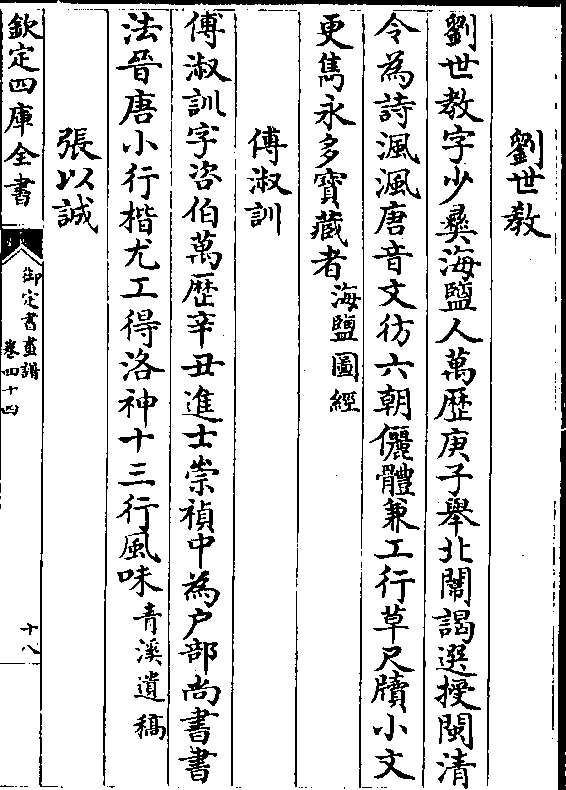 劉世教
劉世教字少彜海鹽人萬歷庚子舉北闈謁選授閩清
令為詩渢渢唐音文彷六朝儷體兼工行草尺牘小文
更雋永多寶藏者海鹽圖經
傅淑訓
傅淑訓字咨伯萬歷辛丑進士崇禎中為户部尚書書
法晉唐小行楷尤工得洛神十三行風味青溪遺稿
張以誠
欽定四庫全書
御定書畫譜
卷四十四
十八